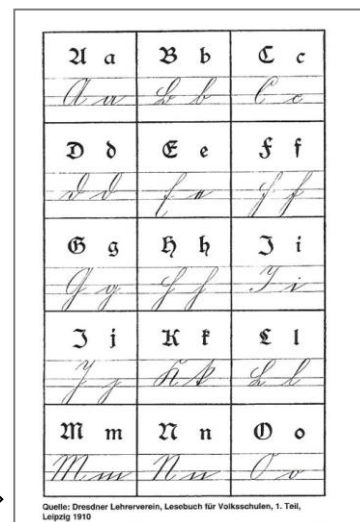 A a B b C c
A a B b C c
D d E e F f
D d E e F f
G g H h I i
G g H h I i
J j K k L l
J j K k L l
M m N n O o
M m N n O o
Quelle: Dresdner Lehrerverein, Lesebuch für Volksschulen, 1. Teil,
Leipzig 1910